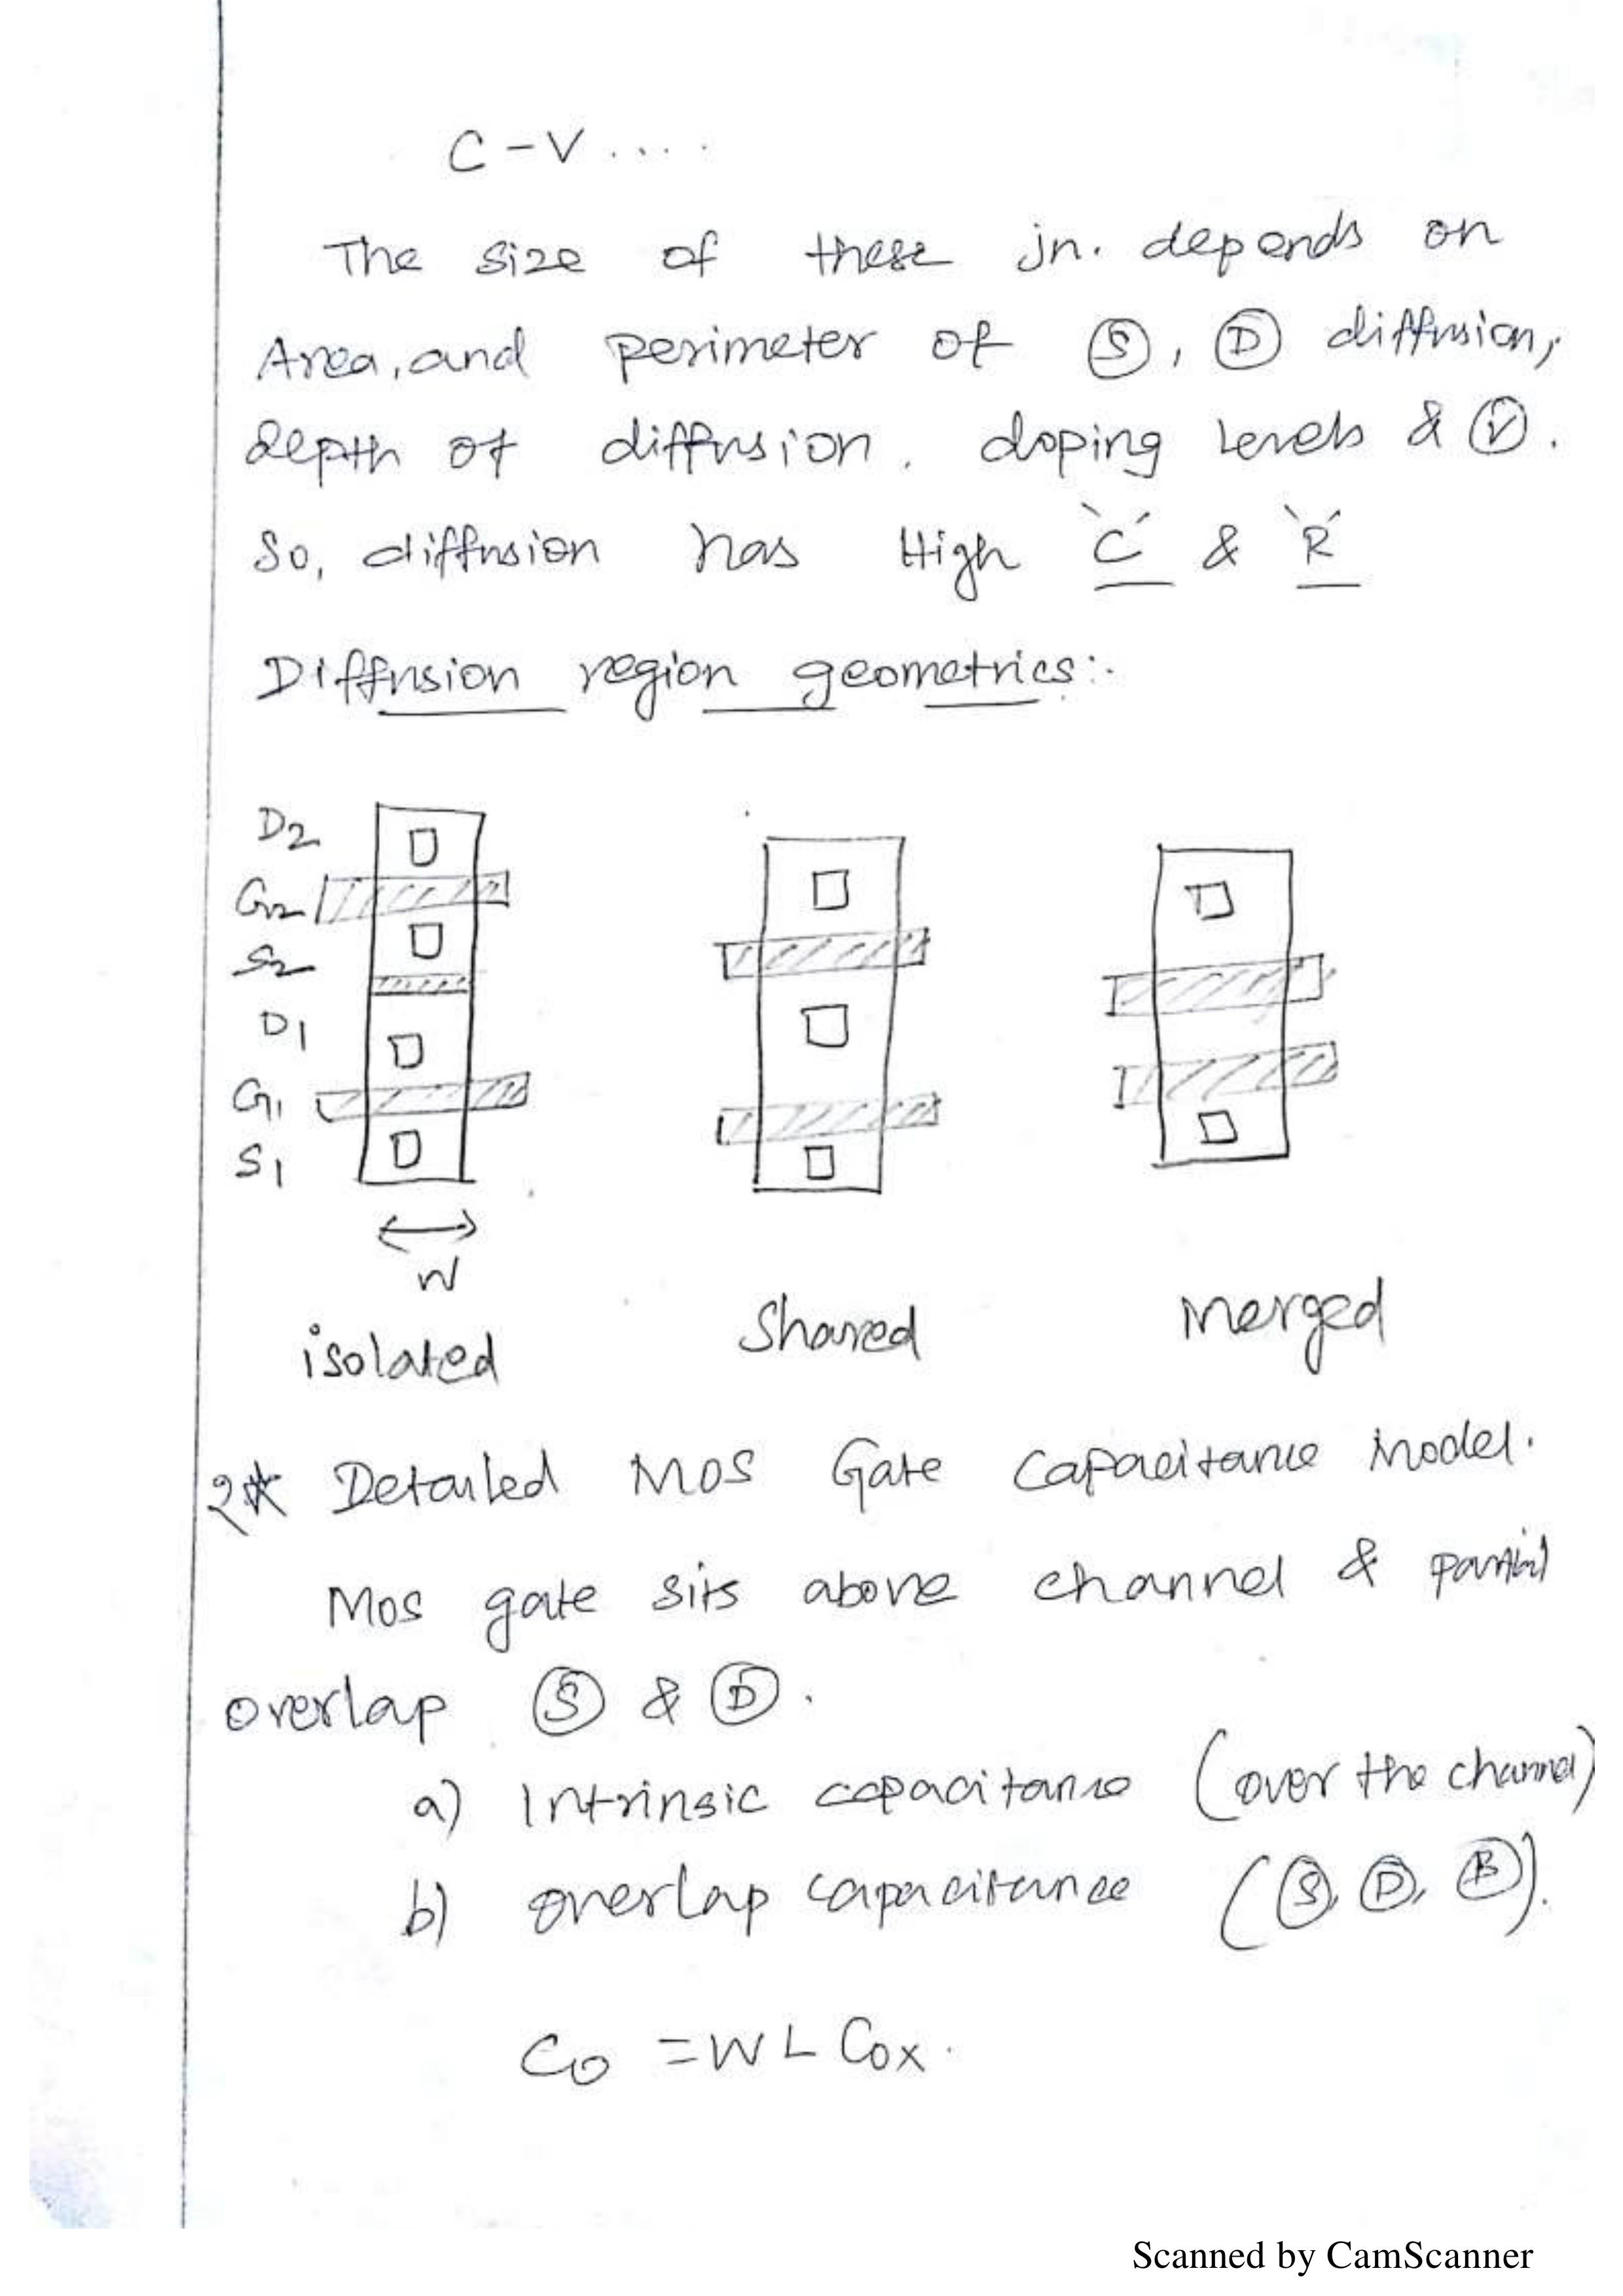 C - V ....
The size of these jn. depends on
Area, and perimeter of Ⓢ, Ⓓ diffusion,
depth of diffusion. doping levels & Ⓥ.
So, diffusion has High 'C' & 'R'
Diffusion region geometrics:-
D2
G2
S2
D1
G1
S1
W
isolated Shared Merged
2* Detailed MOS Gate Capacitance Model.
Mos gate sits above channel & partial
overlap Ⓢ & Ⓓ.
a) Intrinsic capacitance (over the channel)
b) overlap capacitance (Ⓢ, Ⓓ, Ⓑ).
Co = W L Cox.
Scanned by CamScanner